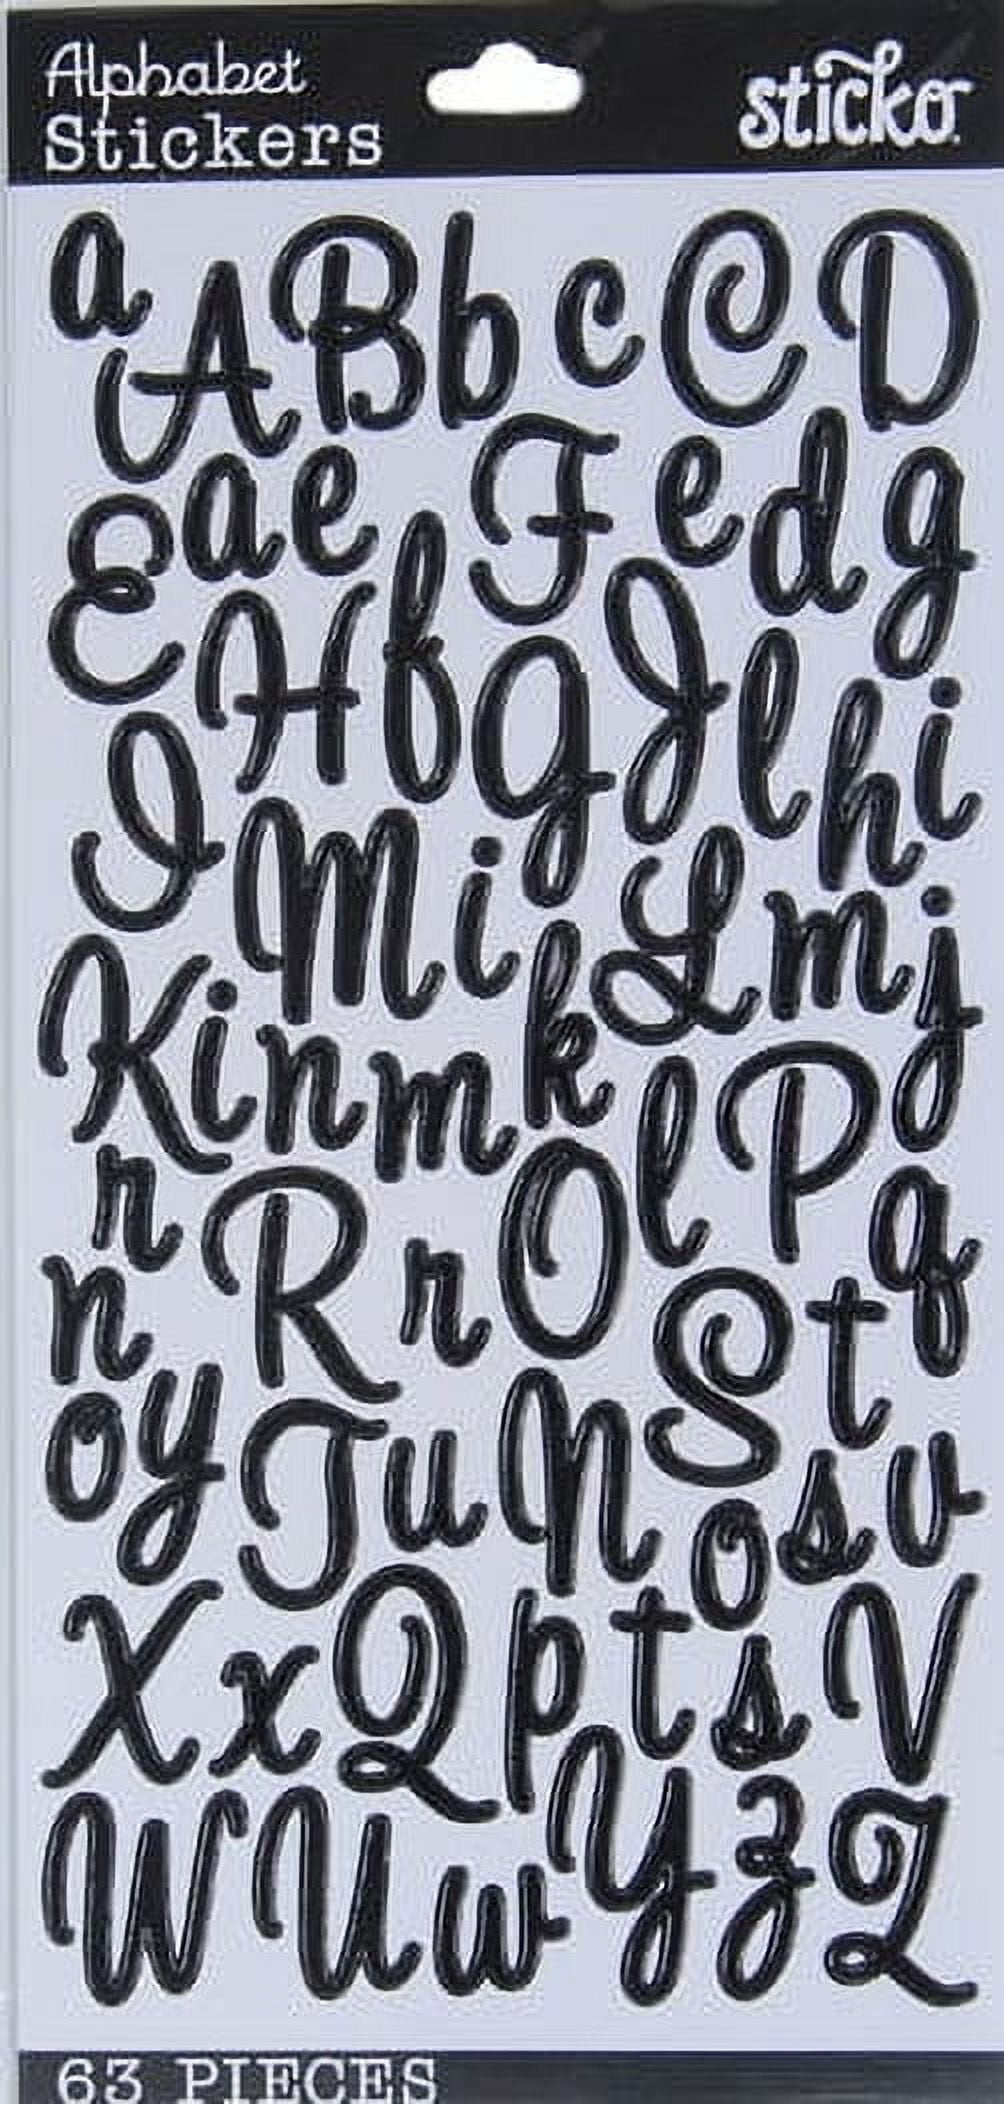 Alphabet
Stickers
sticko
a A B b c C D
E a e F e d g
I H f g J l h i
K M i k L m j
i n m l P q
r R r O S t
n o y T u N o s v
X x Q p t s V
W U w Y z Z
63 PIECES